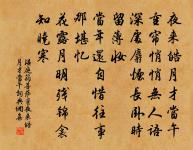 夜來皓月才當午
重簾悄悄無人語
深處麝煙長臥時
留薄妝
當年還自惜往事
那堪憶
花露月明殘錦衾
知曉寒
溫庭筠菩薩蠻夜來皓
月才當午詞典網集